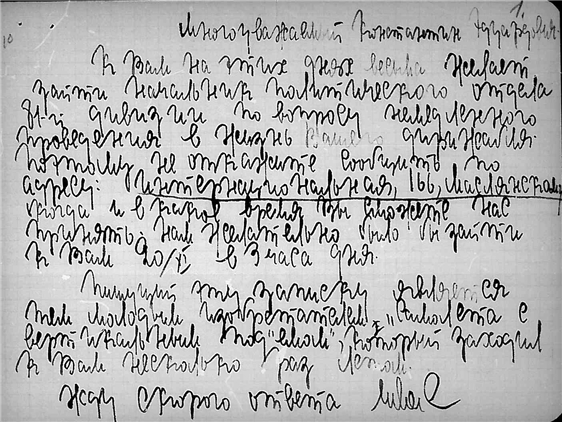 1.
Многоуважаемый Константин Эдуардович.
10
К Вам на этих днях весьма желает
зайти начальник политического отдела
81-й дивизии по вопросу немедленного
проведения в жизнь Вашего дирижабля.
поэтому не откажите сообщить по
адресу: Интернациональная, 166,
когда и в какое время Вы сможете нас
принять. Нам желательно было бы зайти
к Вам 20/XI в 3 часа дня.
Пишущий эту записку является
тем молодым изобретателем, "самолета с
вертикальным под"емом", который заходил
к Вам несколько раз летом.
Жду скорого ответа